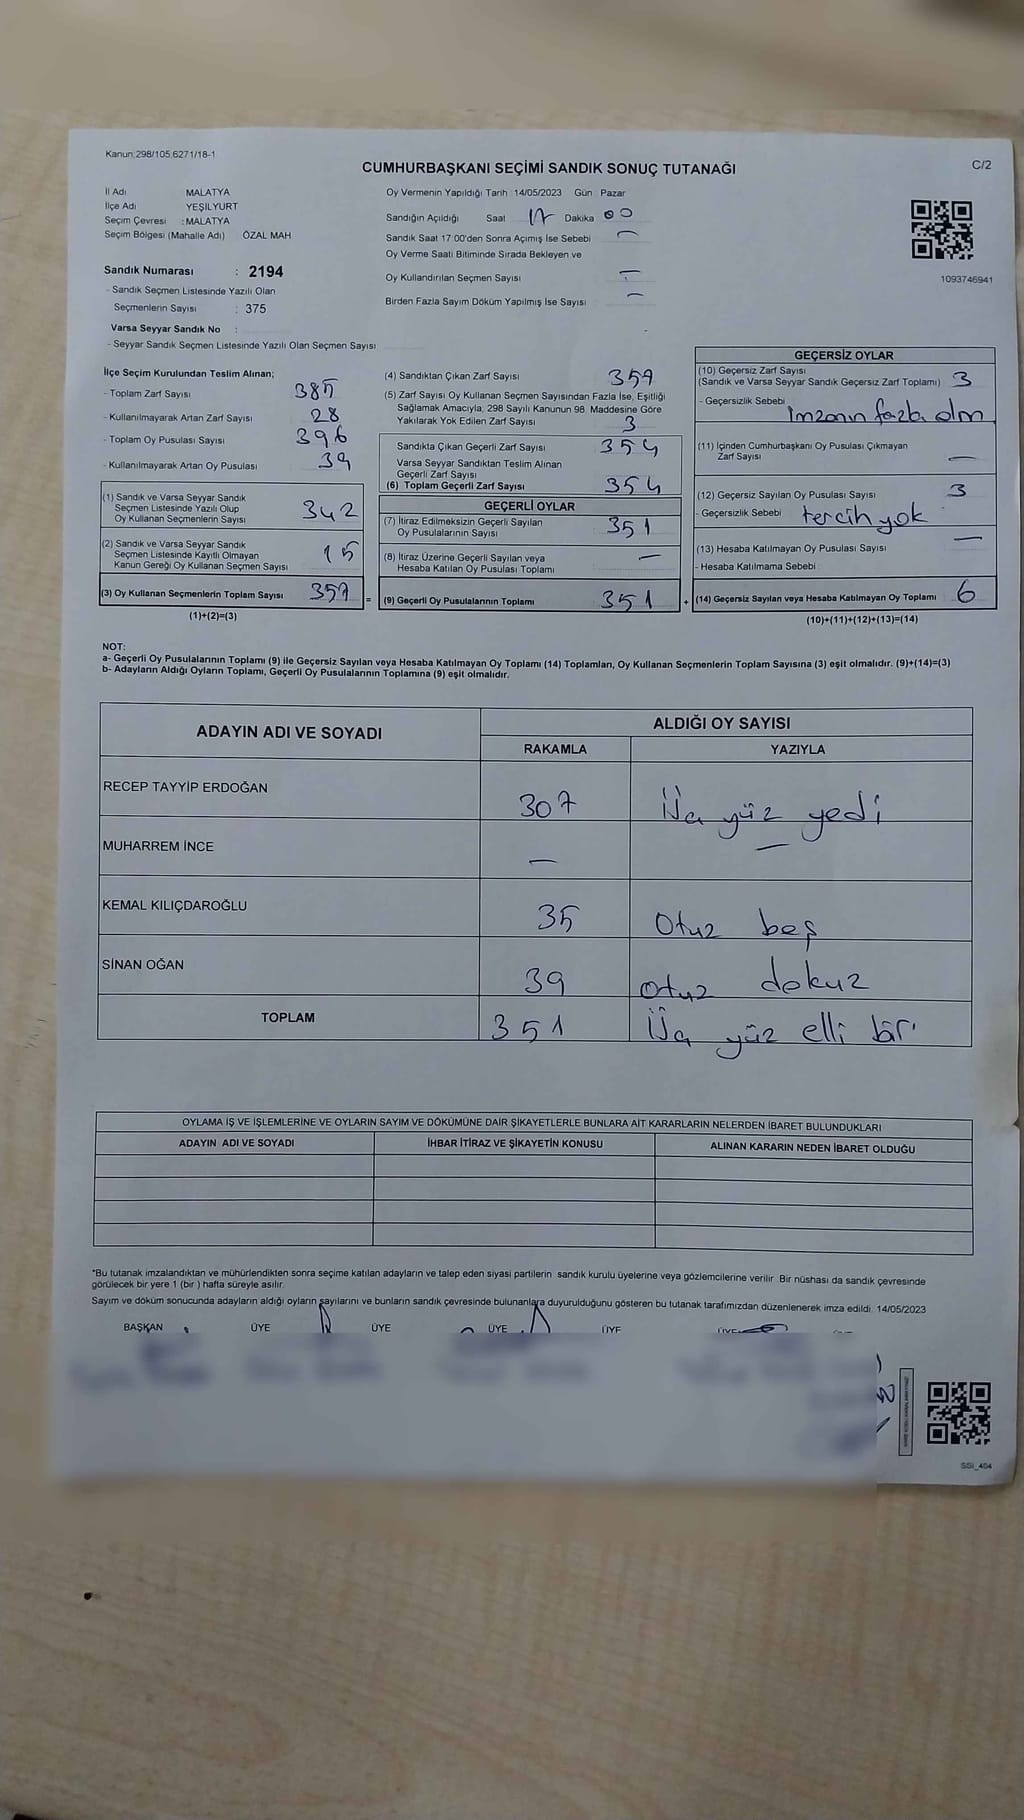 Kanun:298/105;6271/18-1
CUMHURBAŞKANI SEÇİMİ SANDIK SONUÇ TUTANAĞI
C/2
İl Adı MALATYA
İlçe Adı YEŞİLYURT
Seçim Çevresi : MALATYA
Seçim Bölgesi (Mahalle Adı) ÖZAL MAH
Sandık Numarası : 2194
- Sandık Seçmen Listesinde Yazılı Olan
Seçmenlerin Sayısı : 375
Varsa Seyyar Sandık No :
- Seyyar Sandık Seçmen Listesinde Yazılı Olan Seçmen Sayısı
Oy Vermenin Yapıldığı Tarih 14/05/2023 Gün Pazar
Sandığın Açıldığı Saat 17 Dakika 00
Sandık Saat 17 00'den Sonra Açımış İse Sebebi —
Oy Verme Saati Bitiminde Sırada Bekleyen ve
Oy Kullandırılan Seçmen Sayısı —
Birden Fazla Sayım Döküm Yapılmış İse Sayısı —
1093746941
İlçe Seçim Kurulundan Teslim Alınan;
- Toplam Zarf Sayısı 385
- Kullanılmayarak Artan Zarf Sayısı 28
- Toplam Oy Pusulası Sayısı 396
- Kullanılmayarak Artan Oy Pusulası 39
(1) Sandık ve Varsa Seyyar Sandık
Seçmen Listesinde Yazılı Olup
Oy Kullanan Seçmenlerin Sayısı 342
(2) Sandık ve Varsa Seyyar Sandık
Seçmen Listesinde Kayıtlı Olmayan
Kanun Gereği Oy Kullanan Seçmen Sayısı 15
(3) Oy Kullanan Seçmenlerin Toplam Sayısı 357 =
(1)+(2)=(3)
(4) Sandıktan Çıkan Zarf Sayısı 357
(5) Zarf Sayısı Oy Kullanan Seçmen Sayısından Fazla İse, Eşitliği
Sağlamak Amacıyla; 298 Sayılı Kanunun 98. Maddesine Göre
Yakılarak Yok Edilen Zarf Sayısı 3
Sandıkta Çıkan Geçerli Zarf Sayısı 354
Varsa Seyyar Sandıktan Teslim Alınan
Geçerli Zarf Sayısı
(6) Toplam Geçerli Zarf Sayısı 354
GEÇERLİ OYLAR
(7) İtiraz Edilmeksizin Geçerli Sayılan
Oy Pusulalarının Sayısı 351
(8) İtiraz Üzerine Geçerli Sayılan veya
Hesaba Katılan Oy Pusulası Toplamı —
(9) Geçerli Oy Pusulalarının Toplamı 351 +
GEÇERSİZ OYLAR
(10) Geçersiz Zarf Sayısı
(Sandık ve Varsa Seyyar Sandık Geçersiz Zarf Toplamı) 3
- Geçersizlik Sebebi imzanın fazla olm
(11) İçinden Cumhurbaşkanı Oy Pusulası Çıkmayan
Zarf Sayısı —
(12) Geçersiz Sayılan Oy Pusulası Sayısı 3
- Geçersizlik Sebebi tercih yok
(13) Hesaba Katılmayan Oy Pusulası Sayısı —
- Hesaba Katılmama Sebebi
(14) Geçersiz Sayılan veya Hesaba Katılmayan Oy Toplamı 6
(10)+(11)+(12)+(13)=(14)
NOT:
a- Geçerli Oy Pusulalarının Toplamı (9) ile Geçersiz Sayılan veya Hesaba Katılmayan Oy Toplamı (14) Toplamları, Oy Kullanan Seçmenlerin Toplam Sayısına (3) eşit olmalıdır. (9)+(14)=(3)
b- Adayların Aldığı Oyların Toplamı, Geçerli Oy Pusulalarının Toplamına (9) eşit olmalıdır.
ADAYIN ADI VE SOYADI ALDIĞI OY SAYISI
RAKAMLA YAZIYLA
RECEP TAYYİP ERDOĞAN 307 Üç yüz yedi
MUHARREM İNCE — —
KEMAL KILIÇDAROĞLU 35 Otuz beş
SİNAN OĞAN 39 otuz dokuz
TOPLAM 351 Üç yüz elli bir
OYLAMA İŞ VE İŞLEMLERİNE VE OYLARIN SAYIM VE DÖKÜMÜNE DAİR ŞİKAYETLERLE BUNLARA AİT KARARLARIN NELERDEN İBARET BULUNDUKLARI
ADAYIN ADI VE SOYADI İHBAR İTİRAZ VE ŞİKAYETİN KONUSU ALINAN KARARIN NEDEN İBARET OLDUĞU
*Bu tutanak imzalandıktan ve mühürlendikten sonra seçime katılan adayların ve talep eden siyasi partilerin sandık kurulu üyelerine veya gözlemcilerine verilir Bir nüshası da sandık çevresinde
görülecek bir yere 1 (bir ) hafta süreyle asılır.
Sayım ve döküm sonucunda adayların aldığı oyların sayılarını ve bunların sandık çevresinde bulunanlara duyurulduğunu gösteren bu tutanak tarafımızdan düzenlenerek imza edildi. 14/05/2023
BAŞKAN ÜYE ÜYE ÜYE ÜYE ÜYE
SSI_404